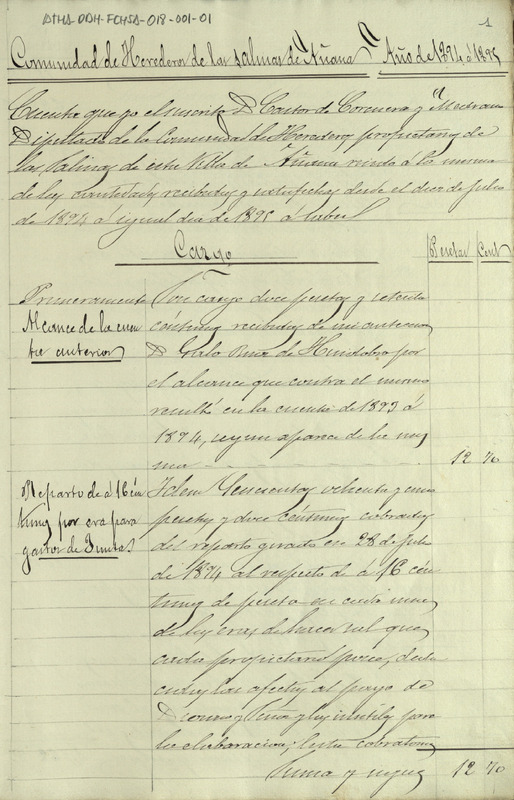 ATHA-DDH-FCHSA-018-001-01
1
Comunidad de Herederos de las salinas de Añana Año de 1894 á 1895
Cuenta que yo el suscrito D. Castor de Corcuera y Medrano
Diputado de la Comunidad de Herederos propietarios de
las Salinas de esta Villa de Añana rindo a la misma
de las cantidades recibidas y satisfechas desde el diez de Julio
de 1894 a igual dia de 1895 a saber
Cargo
Pesetas Cent
Primeramente
Alcance de la cuen
ta anterior
Son cargo doce pesetas y setenta
céntimos recibidas de mi anterior
D. Ruiz de Huidobro por
el alcance que contra el mismo
resultó en la cuenta de 1893 á
1894, segun aparece de la mis
ma 12 70
Reparto de á 16 cén
timos por era para
gastos de Juntas
Idem ochenta y cinco
pesetas y doce céntimos cobradas
del reparto girado en 28 de Julio
de 1894 al respecto de á 16 cén
timos de peseta en cada una
de las eras de hacer sal que
cada propietario posee,
las afectas al pago de
y las inutiles para
la elaboracion;
Suma y sigue 12 70